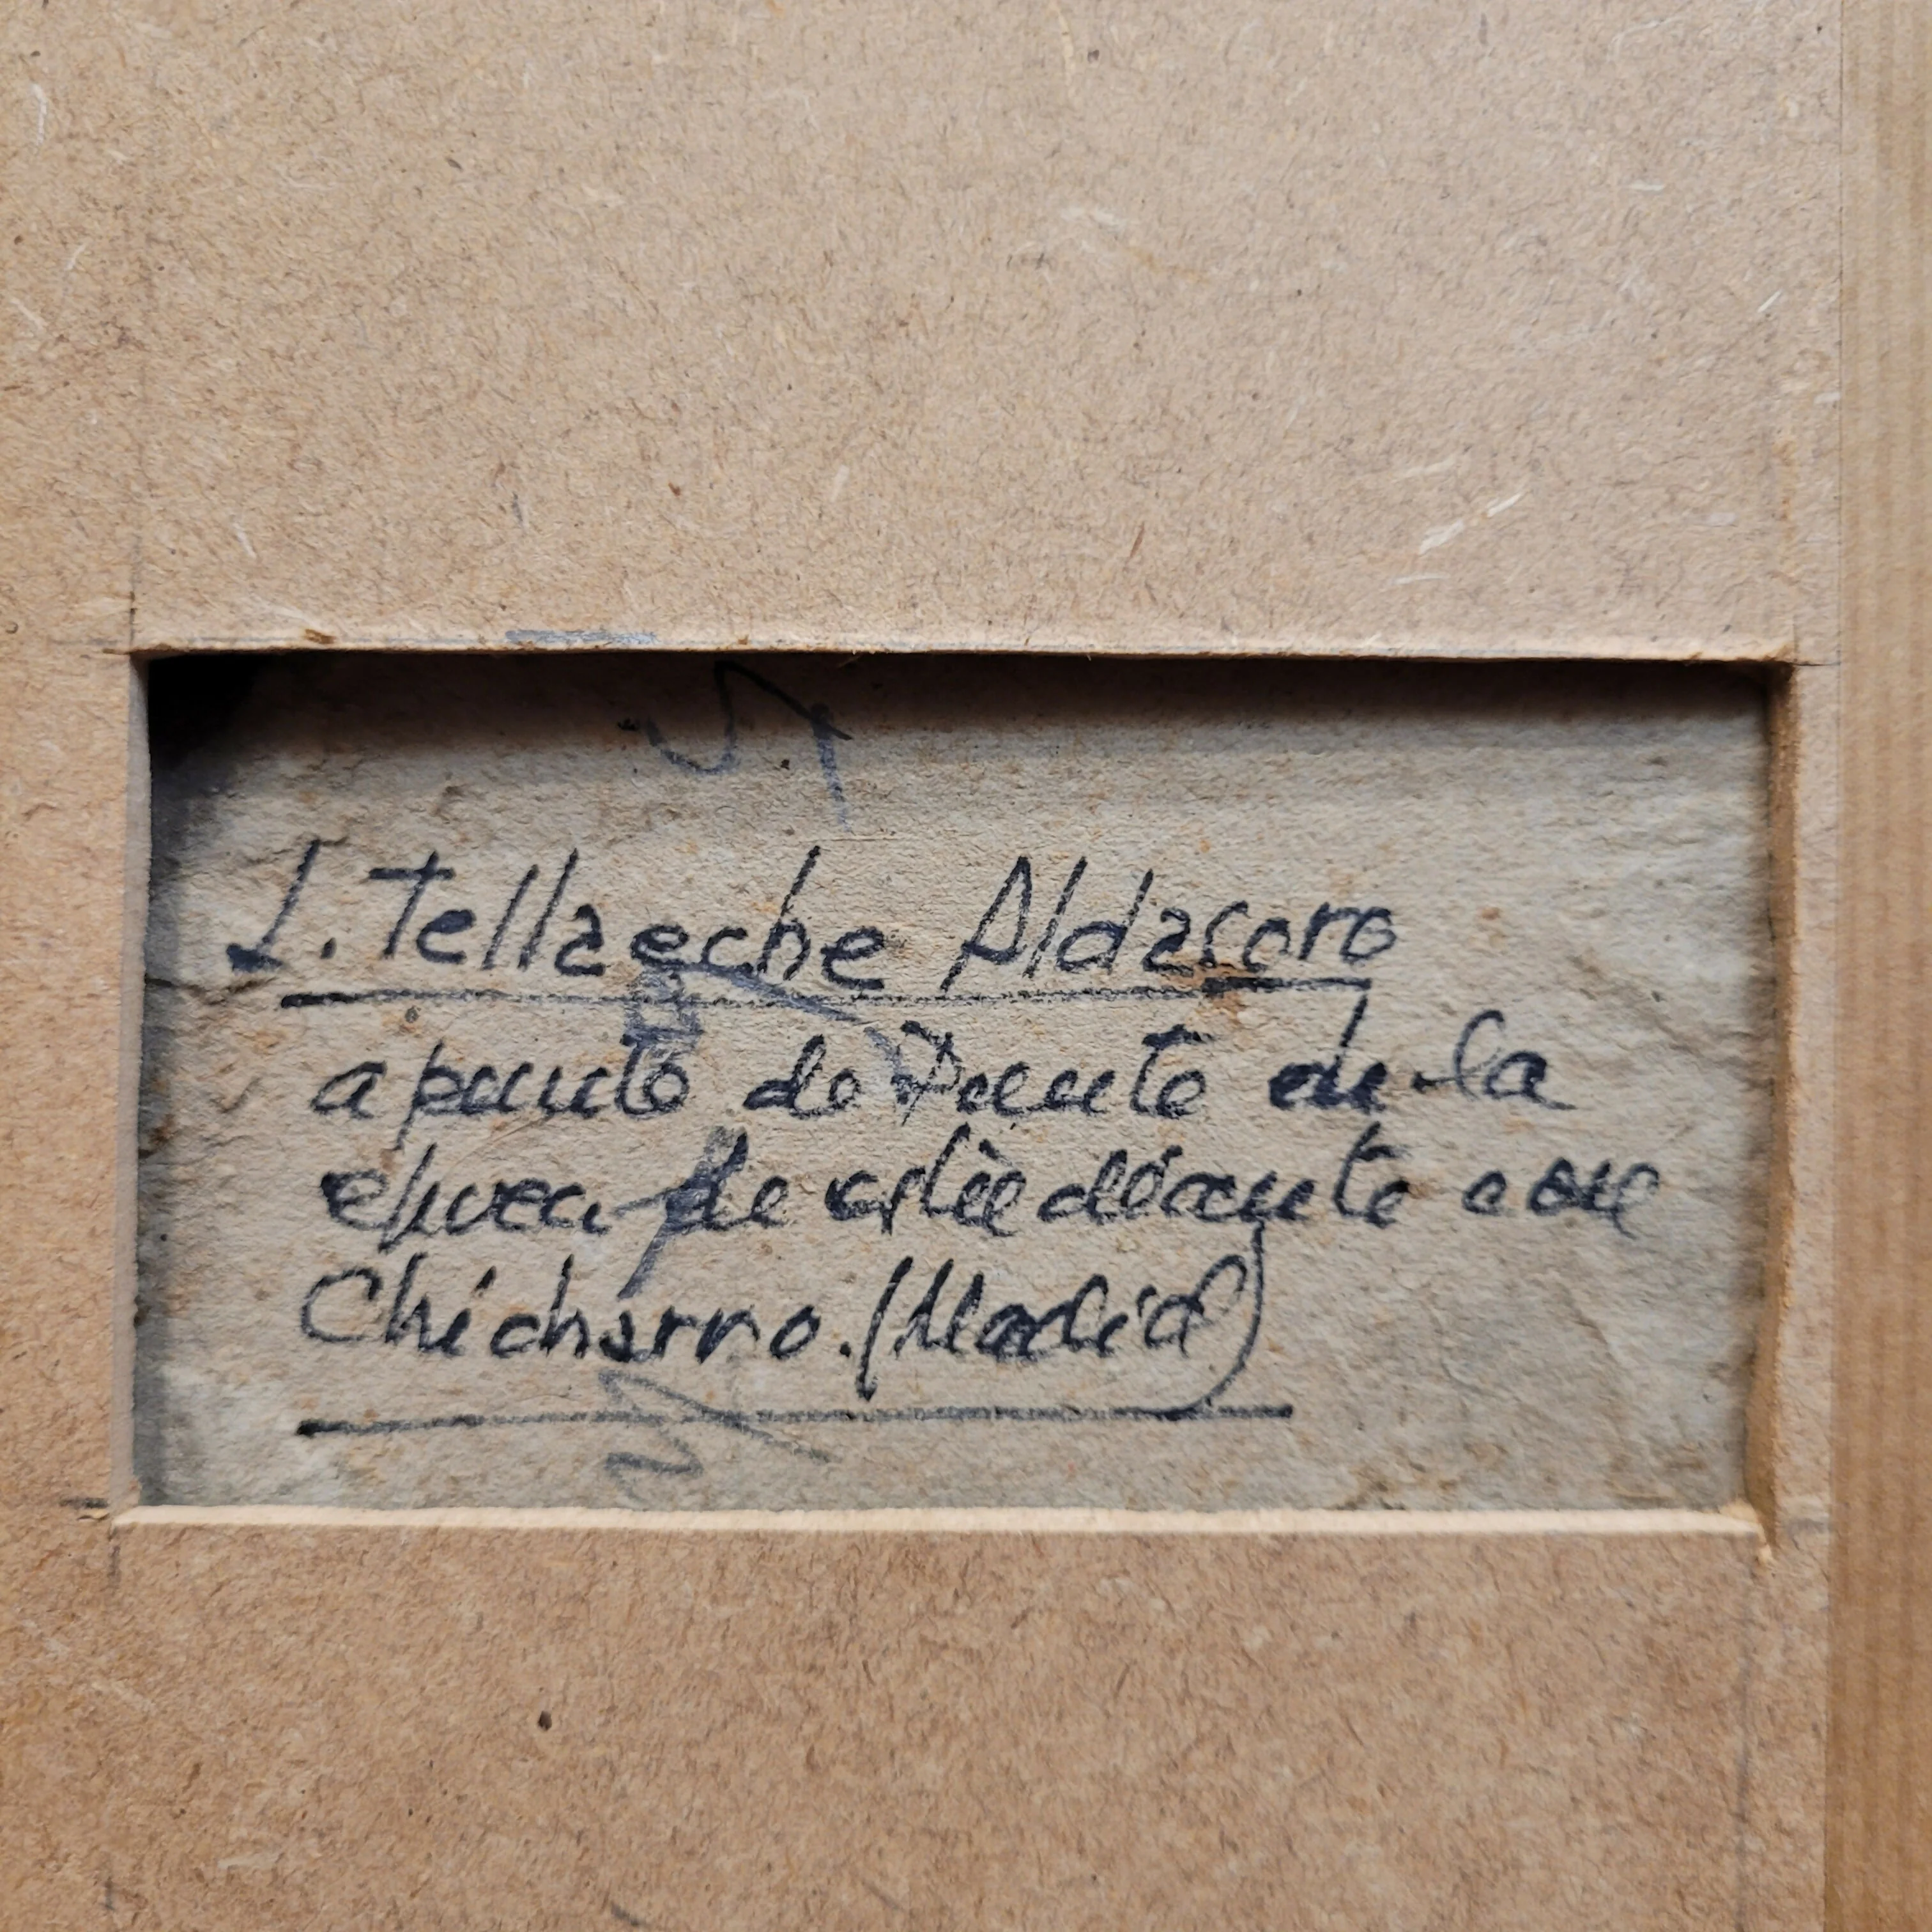 J. Tellaeche Aldasoro
apunte de Puente de la
epoca de estudiante con
Chicharro. (Madrid)